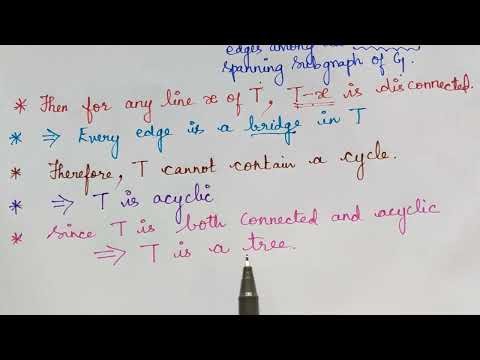 edges among
spanning subgraph of G.
* Then for any line x of T, T-x is disconnected.
* ⇒ Every edge is a bridge in T
* Therefore, T cannot contain a cycle.
* ⇒ T is acyclic
* Since T is both connected and acyclic
⇒ T is a tree.